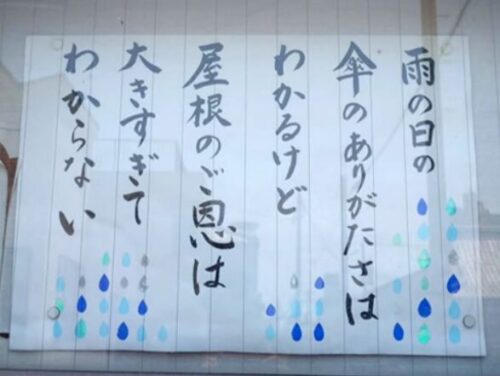 雨の日の
傘のありがたさは
わかるけど
屋根のご恩は
大きすぎて
わからない